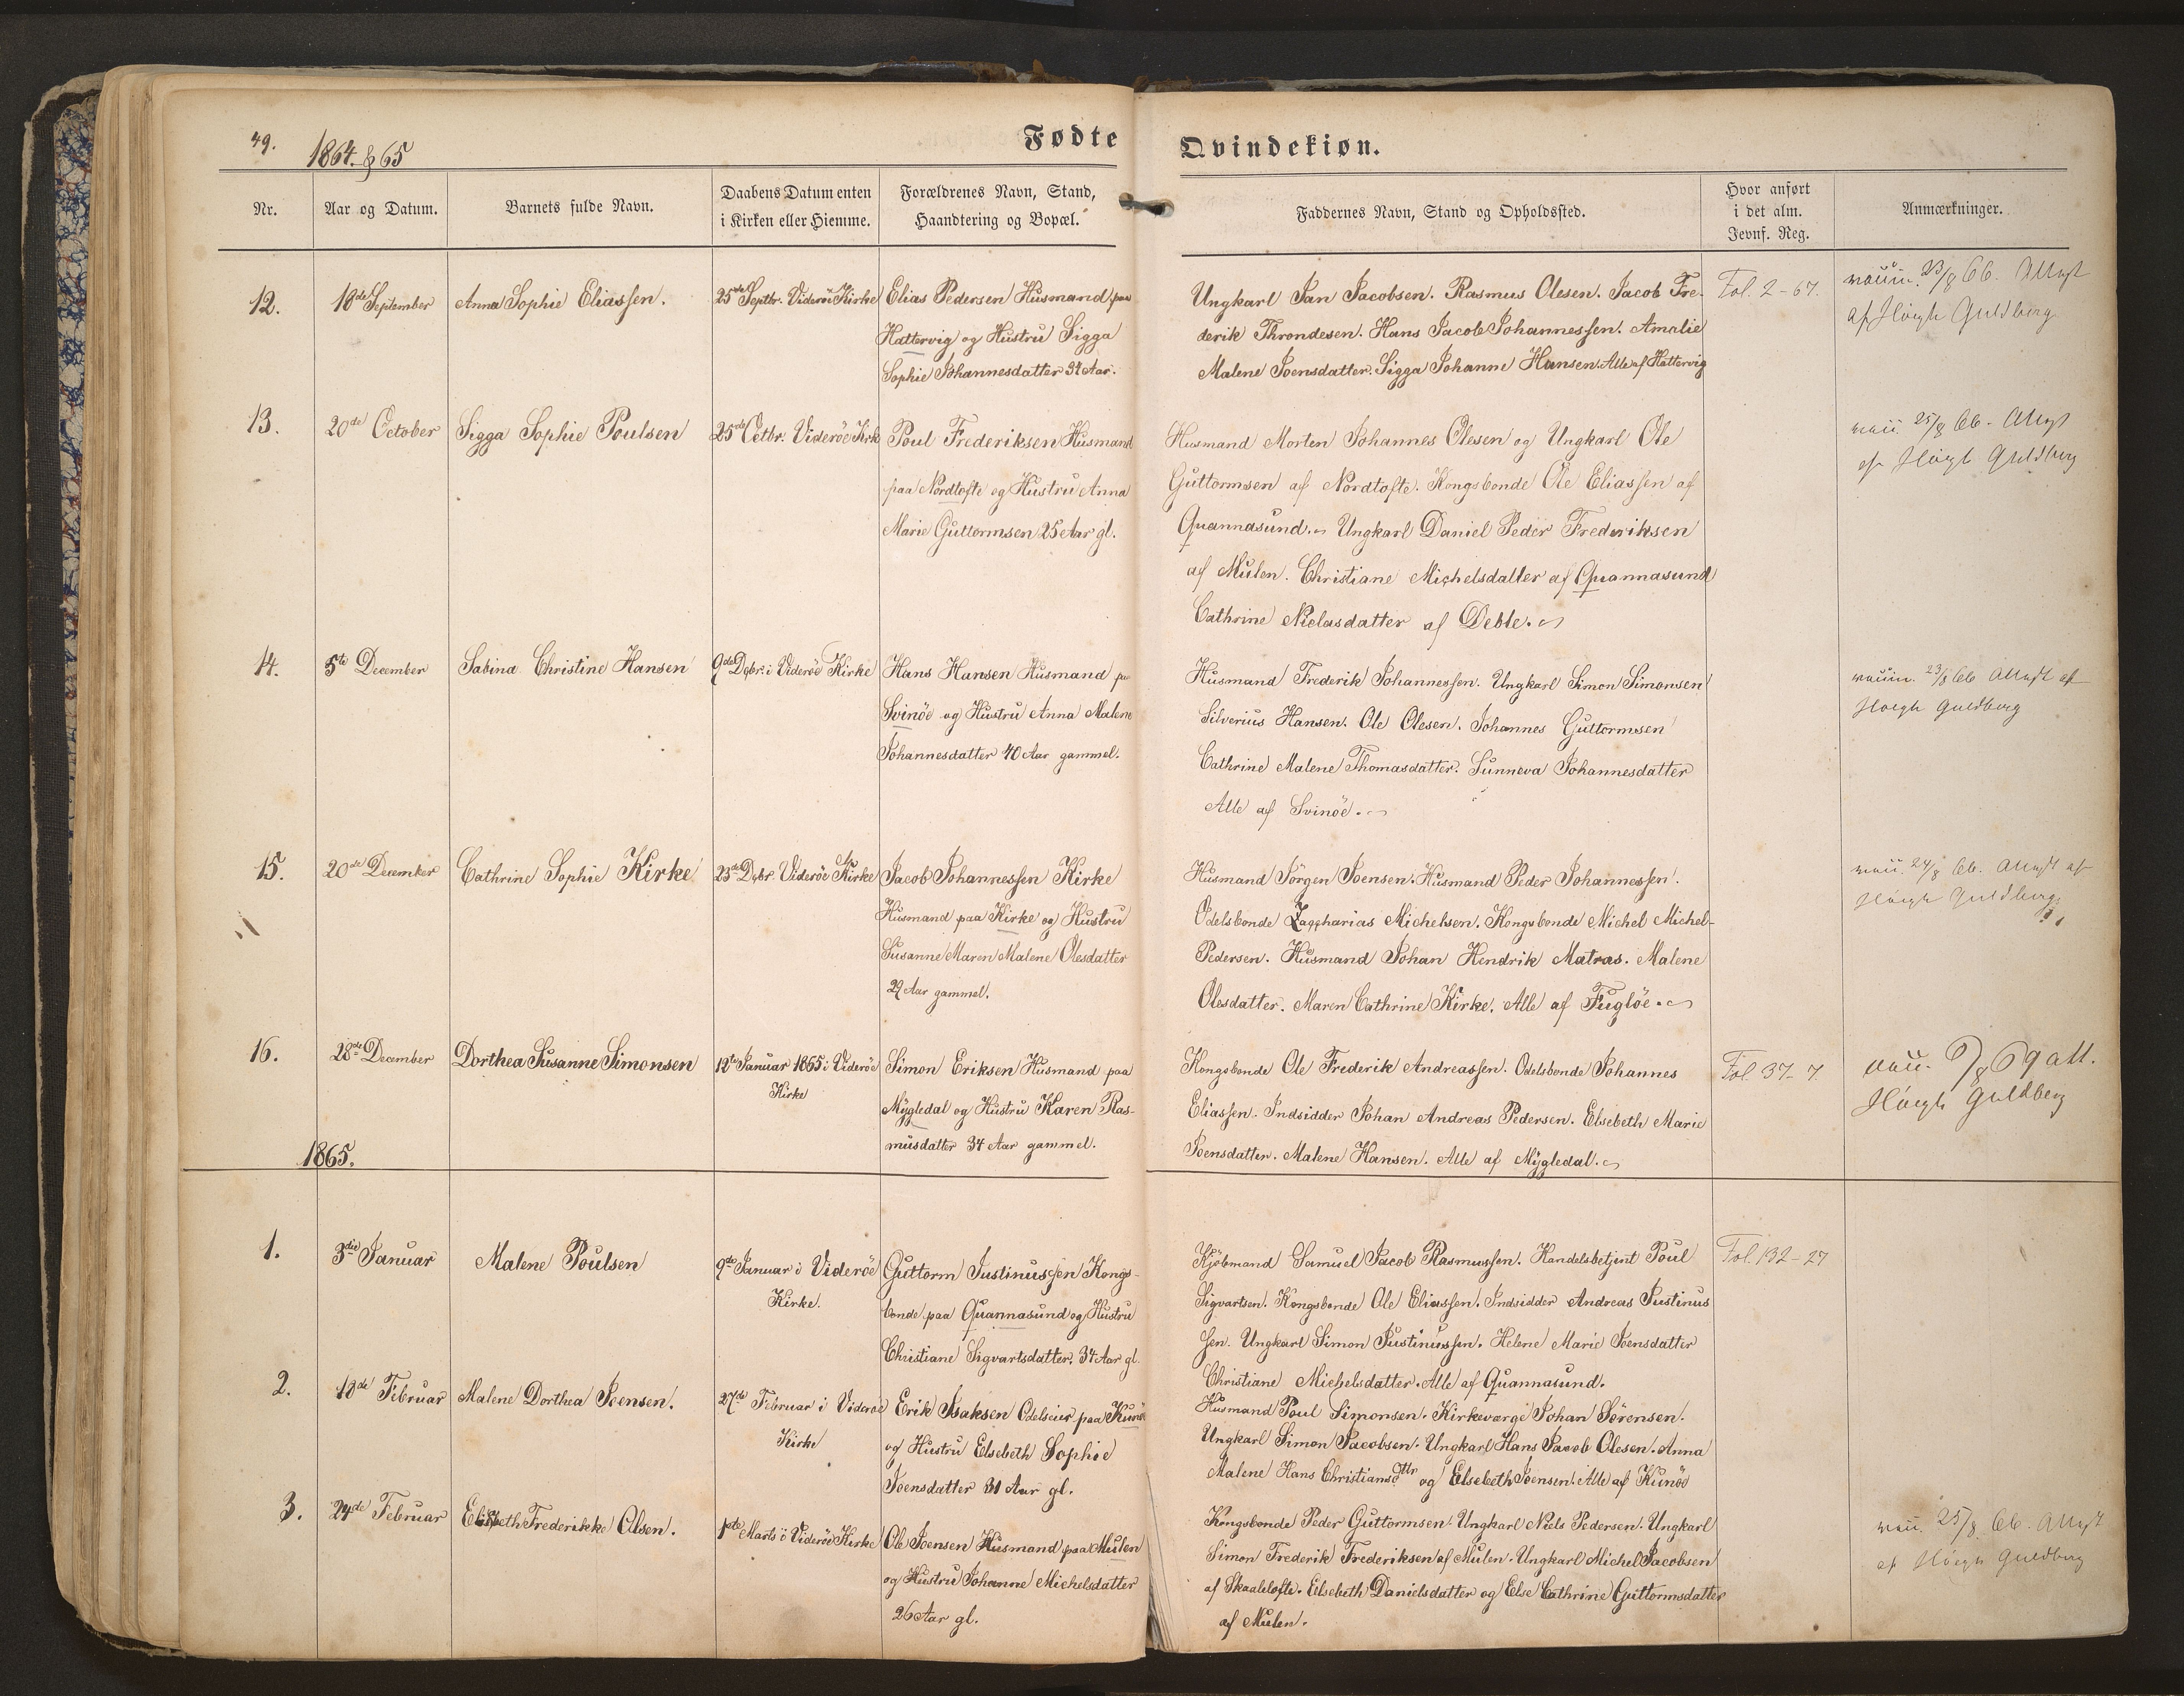 49.
1864. & 65
Fødte
Qvindekiøn.
Nr.
Aar og Datum.
Barnets fulde Navn.
Daabens Datum enten
i Kirken eller Hiemme.
Forældrenes Navn, Stand,
Haandtering og Bopæl.
Faddernes Navn, Stand og Opholdssted.
Hvor anført
i det alm.
Jevnf. Reg.
Anmærkninger.
12.
18de September
Anna Sophie Eliassen.
25de Septbr. Viderøe Kirke
Elias Pedersen Husmand paa
Hattervig og Hustru Sigga
Sophie Johannesdatter 34 Aar.
Ungkarl Jan Jacobsen. Rasmus Olesen. Jacob Fre-
derik Throndesen. Hans Jacob Johannessen. Amalie
Malene Joensdatter. Sigga Johanne Hansen. Alle af Hattervig
Fol. 2-67.
vaccin. 23/8 66. Attest
af Høegh Guldberg
13.
20de October
Sigga Sophie Poulsen
25de Octbr. Viderøe Kirk
Poul Frederiksen Husmand
paa Nordtofte og Hustru Anna
Marie Guttormsen 25 Aar gl.
Husmand Morten Johannes Olesen og Ungkarl Ole
Guttormsen af Nordtofte. Kongsbonde Ole Eliassen af
Quannasund. Ungkarl Daniel Peder Frederiksen
af Mulen. Christiane Michelsdatter af Quannasund
Cathrine Niclasdatter af Deble.
vacc. 25/8 66. Attest
af Høegh Guldberg
14.
5te December
Sabina Christine Hansen
9de Dcbr. i Viderøe Kirke
Hans Hansen Husmand paa
Svinöe og Hustru Anna Malene
Johannesdatter 40 Aar gammel.
Husmand Frederik Johannessen. Ungkarl Simon Simonsen
Silverius Hansen. Ole Olesen. Johannes Guttormsen
Cathrine Malene Thomasdatter. Sunneva Johannesdatter
Alle af Svinöe.
vaccin. 23/8 66 Attest af
Høegh Guldberg
15.
20de December
Cathrine Sophie Kirke
23de Dcbr. Viderøe Kirke
Jacob Johannessen Kirke
Husmand paa Kirke og Hustru
Susanne Maren Malene Olesdatter
29 Aar gammel.
Husmand Jörgen Joensen. Husmand Peder Johannessen.
Odelsbonde Zaccharias Michelsen. Kongsbonde Michel Michel-
Pedersen. Husmand Johan Hendrik Matras. Malene
Olesdatter. Maren Cathrine Kirke. Alle af Fuglöe.
vacc. 24/8 66. Attest af
Høegh Guldberg
16.
28de December
Dorthea Susanne Simonsen
12te Januar 1865 i Viderøe
Kirke
Simon Eriksen Husmand paa
Mygledal og Hustru Karen Ras-
musdatter 34 Aar gammel.
Kongsbonde Ole Frederik Andreassen. Odelsbonde Johannes
Eliassen. Indsidder Johan Andreas Pedersen. Elsebeth Marie
Joensdatter. Malene Hansen. Alle af Mygledal.
Fol. 37-7.
vacc. 69 att.
Høegh Guldberg
1865.
1.
3die Januar
Malene Poulsen
9de Januar i Viderøe
Kirke.
Guttorm Justinussen Kongs-
bonde paa Quannasund og Hustru
Christiane Sigvartsdatter. 34 Aar gl.
Kjöbmand Samuel Jacob Rasmussen. Handelsbetjent Poul
Sigvartsen. Kongsbonde Ole Eliassen. Indsidder Andreas Justinus
sen. Ungkarl Simon Justinussen. Helene Marie Joensdatter
Christiane Michelsdatter. Alle af Quannasund.
Fol. 132-27
2.
18de Februar
Malene Dorthea Joensen.
27de Februar i Viderøe
Kirke
Erik Isaksen Odelseier paa Kunöe
og Hustru Elsebeth Sophie
Joensdatter 31 Aar gl.
Husmand Poul Simonsen. Kirkeværge Johan Sörensen.
Ungkarl Simon Jacobsen. Ungkarl Hans Jacob Olesen. Anna
Malene Hans Christiansdttr og Elsebeth Joensen. Alle af Kunöe
3.
24de Februar
Elsebeth Frederikke Olsen.
1ste Marts i Viderøe Kirke
Ole Joensen Husmand paa Mulen
og Hustru Johanne Michelsdatter
26 Aar gl.
Kongsbonde Peder Guttormsen. Ungkarl Niels Pedersen. Ungkarl
Simon Frederik Frederiksen af Mulen. Ungkarl Michel Jacobsen
af Skaaletofte. Elsebeth Danielsdatter og Else Cathrine Guttormsdatter
af Mulen.
vacc. 25/8 66. Attest
af Høegh Guldberg